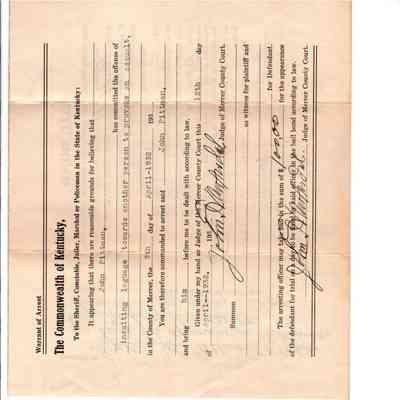 Warrant of Arrest
The Commonwealth of Kentucky,
To the Sheriff, Constable, Jailer, Marshal or Policeman in the State of Kentucky:
It appearing that there are reasonable grounds for believing that
John Pittman,
has committed the offense of
insulting language towards another person to provoke an assault,
in the County of Mercer, the 9th day of April-1932 193
You are therefore commanded to arrest said John Pittman,
and bring him before me to be dealt with according to law.
Given under my hand as Judge of the Mercer County Court this 12th day
of April--1932, 193
Judge of Mercer County Court.
Summon as witness for plaintiff and
for Defendant.
The arresting officer may take bail in the sum of $ 100.00 for the appearance
of the defendant for trial on a day to be fixed by said officer in the bail bond according to law.
Judge of Mercer County Court.